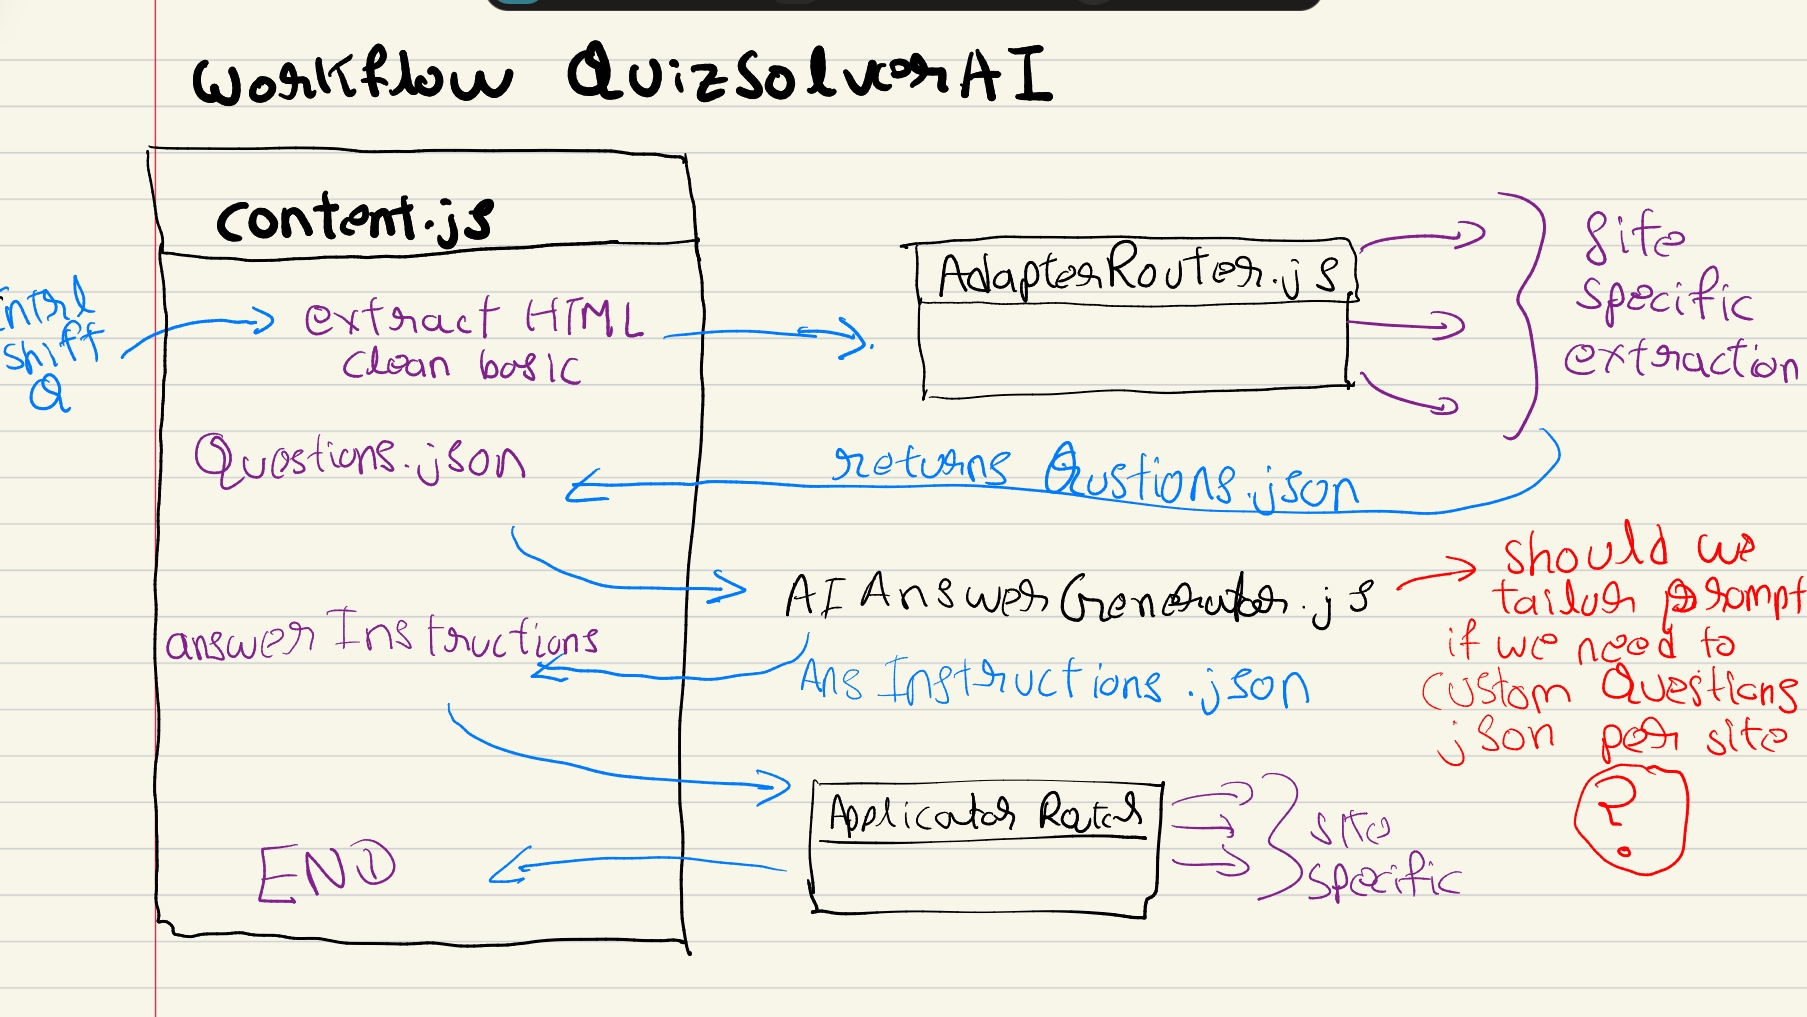 Workflow QuizSolverAI
content.js
ntrl
shift
Q
extract HTML
clean basic
AdapterRouter.js
site
specific
extraction
Questions.json
returns Qustions.json
AI AnswerGenerator.js
should we
tailor prompt
if we need to
custom Questions
json per site
?
answer Instructions
Ans Instructions.json
Applicator Router
site
specific
END